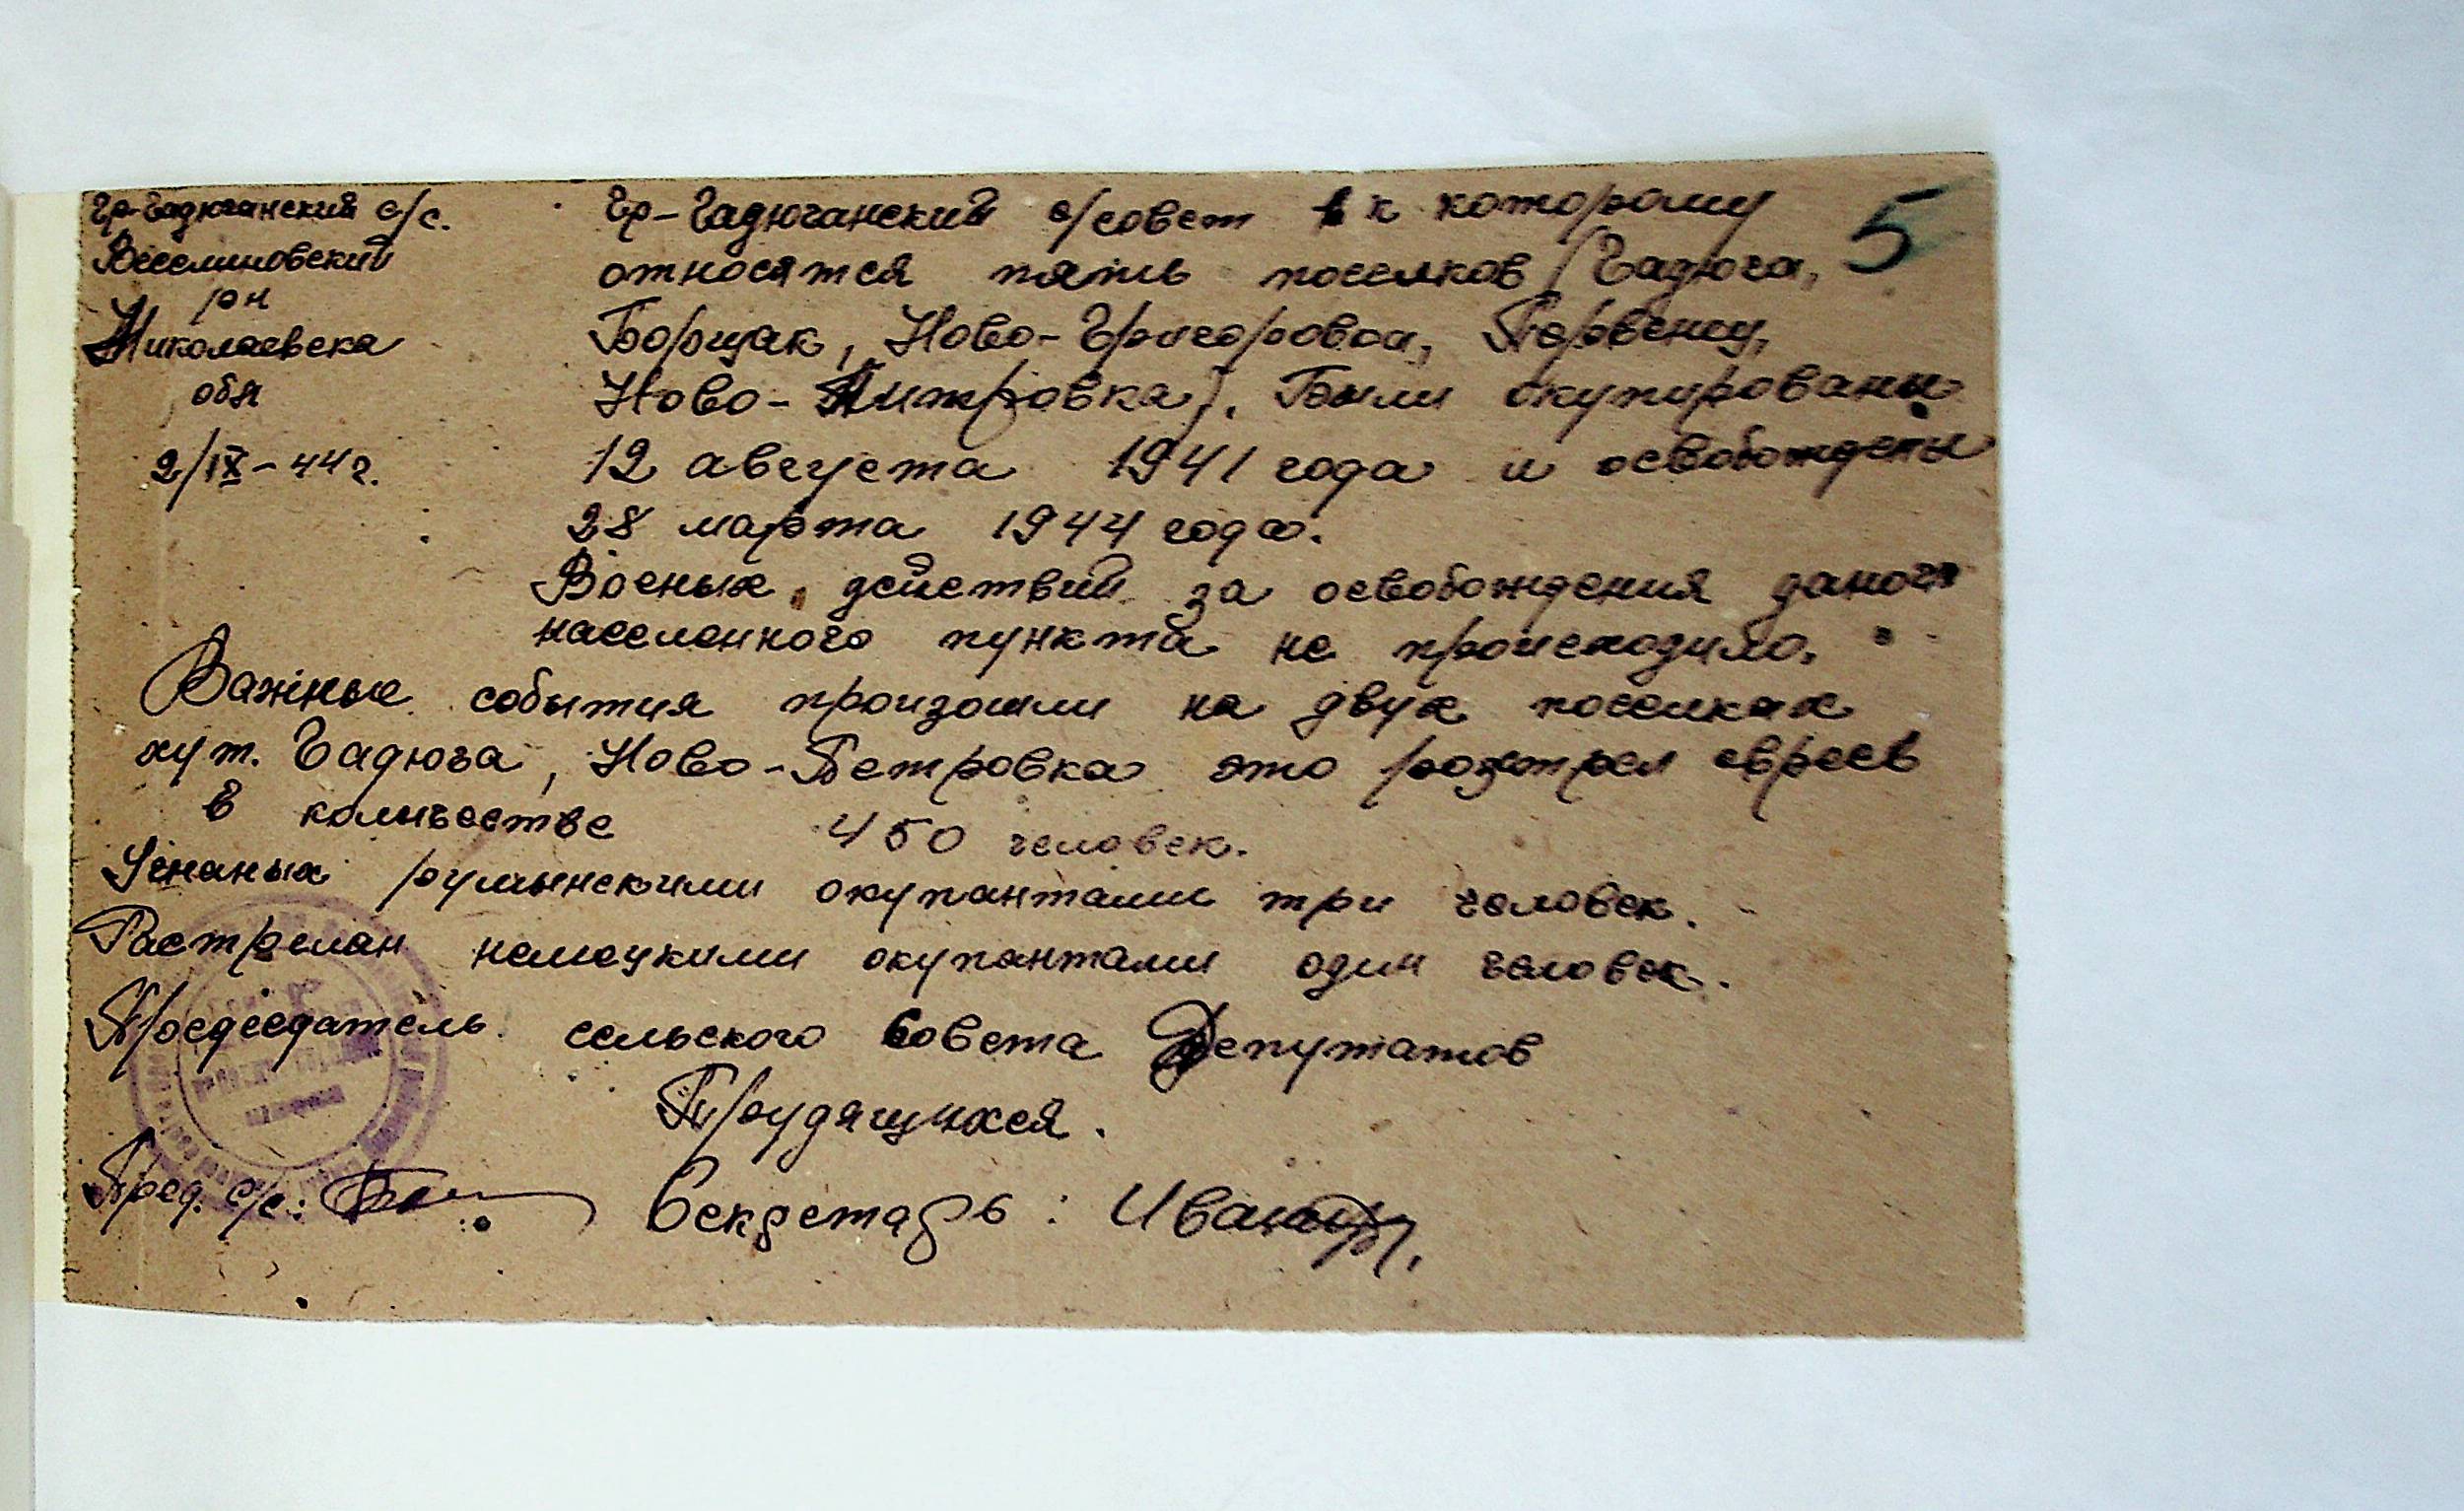 Гр-Гадючанский с/с.
Веселиновский
рн
Николаевска
обл
2/IX-44 г.
5
Гр-Гадючанский с/совет к которому
относятся пять поселков (Гадюча,
Борщак, Ново-Григоровка,
Ново-Митровка). Были окупированы
12 августа 1941 года и освобождены
28 марта 1944 года.
Военых действий за освобождения даного
населенного пункта не происходило.
Важные события произошли на двух поселках
хут. Гадюча, Ново-Петровка это розстрел евреев
в количестве 450 человек.
Угнаных румынскими окупантами три человек.
Растрелан немецкими окупантами один человек.
Председатель сельского Совета Депутатов
Трудящихся.
Пред. с/с: Секретарь: